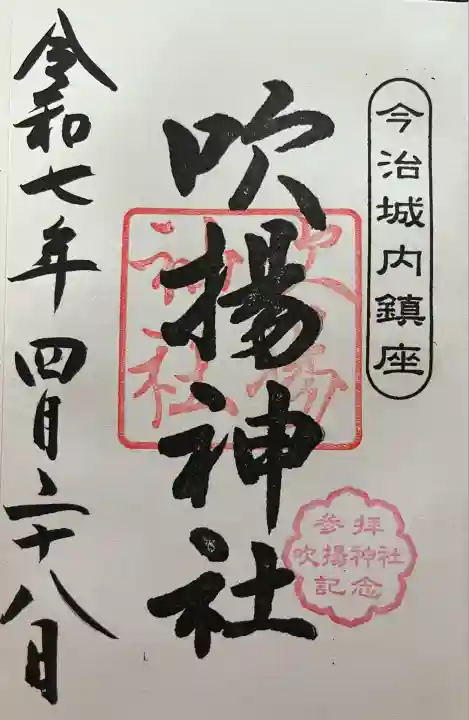 今治城内鎮座
吹揚神社
吹揚
神社
参拝
吹揚神社
記念
令和七年四月二十八日